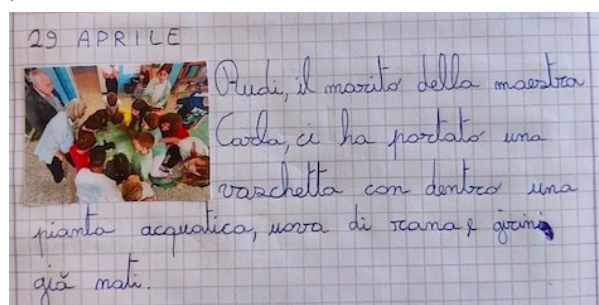 29 APRILE
Rudi, il marito della maestra
Carla, ci ha portato una
vaschetta con dentro una
pianta acquatica, uova di rana e girini
già nati.